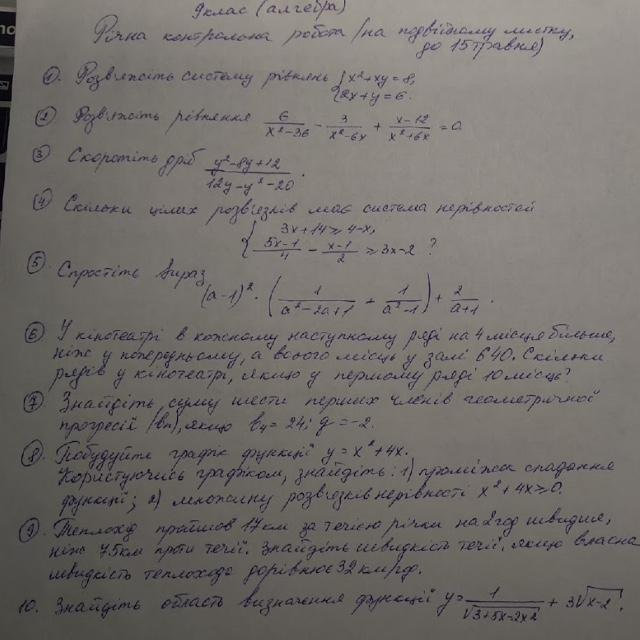 9клас (алгебра)
Річна контрольна робота (на подвійному листку,
до 15 травня)
1. Розв'яжіть систему рівнянь { x²+xy=8,
2x+y=6.
2 Розв'яжіть рівняння 6/(x²-36) - 3/(x²-6x) + (x-12)/(x²+6x) = 0
3 Скоротіть дріб (y²-8y+12)/(12y-y²-20).
4 Скільки цілих розв'язків має система нерівностей
{ 3x+14≥4-x,
(5x-1)/4 - (x-1)/2 ≥3x-2 ?
5 Спростіть вираз
(a-1)²·(1/(a²-2a+1) + 1/(a²-1)) + 2/(a+1).
6 У кінотеатрі в кожному наступному ряді на 4 місця більше,
ніж у попередньому, а всього місць у залі 640. Скільки
рядів у кінотеатрі, якщо у першому ряді 10 місць?
7 Знайдіть суму шести перших членів геометричної
прогресії (bn), якщо b₄=24; q=-2.
8 Побудуйте графік функції y=x²+4x.
Користуючись графіком, знайдіть: 1) проміжок спадання
функції; 2) множину розв'язків нерівності x²+4x≥0.
9 Теплохід пройшов 17км за течією річки на 2год швидше,
ніж 75км проти течії. Знайдіть швидкість течії, якщо власна
швидкість теплохода дорівнює 32 км/год.
10. Знайдіть область визначення функції y=1/√(3+5x-2x²) + 3√(x-2).